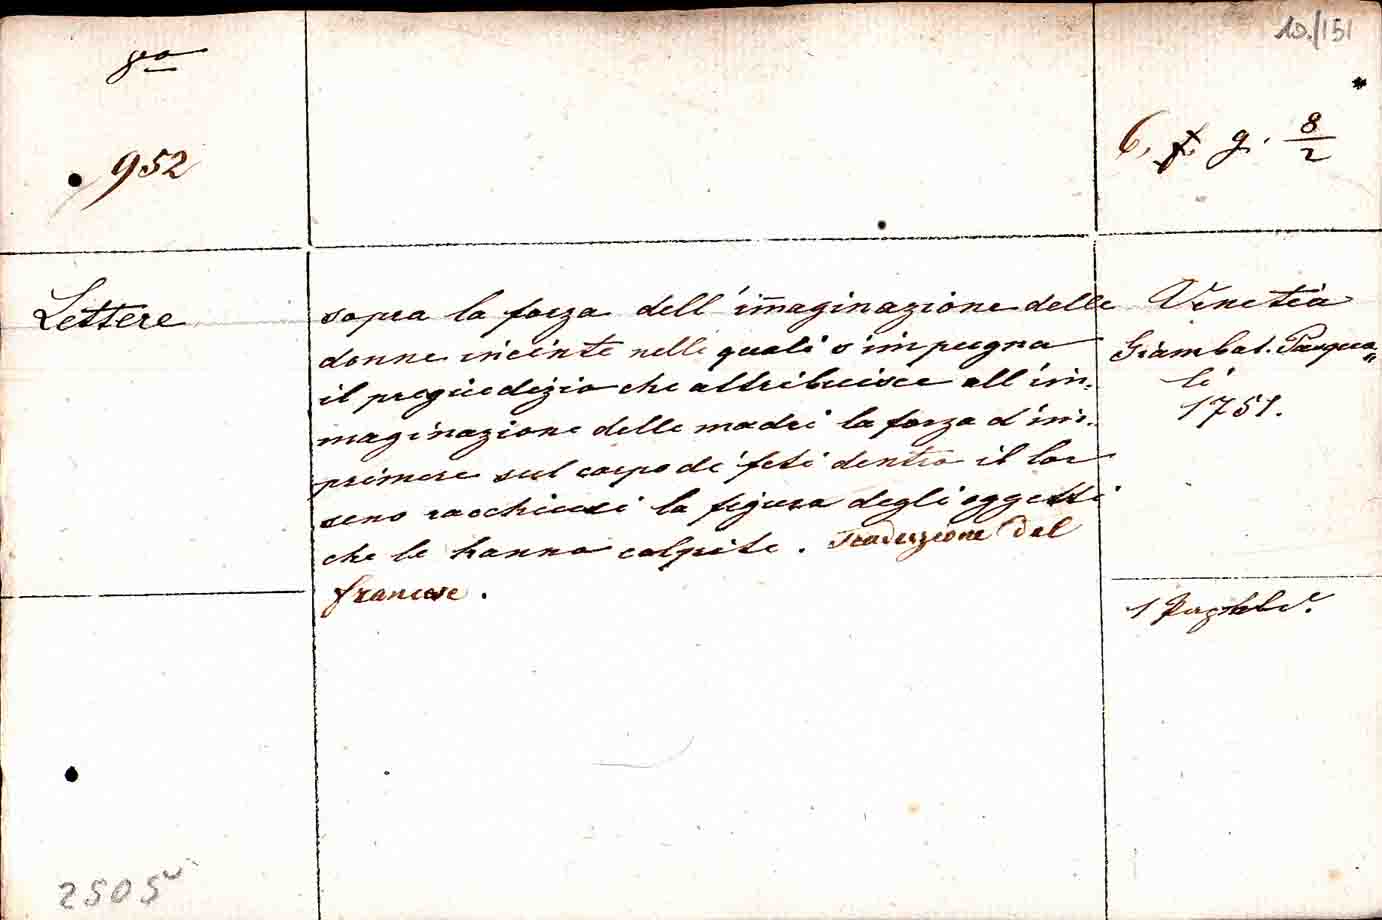 8vo
952
10./151
6, g. 8/2
Lettere
sopra la forza dell'im̄aginazione delle
donne incinte nelle quali s'impugna
il pregiudizio che attribuisce all'im=
maginazione delle madri la forza d'im=
primere sul corpo de' feti dentro il lor
seno racchiusi la figura degli oggetti
che le hanno colpite. Traduzione del
francese.
Venetia
Giambat. Pasqua=
li
1751.
1
2505